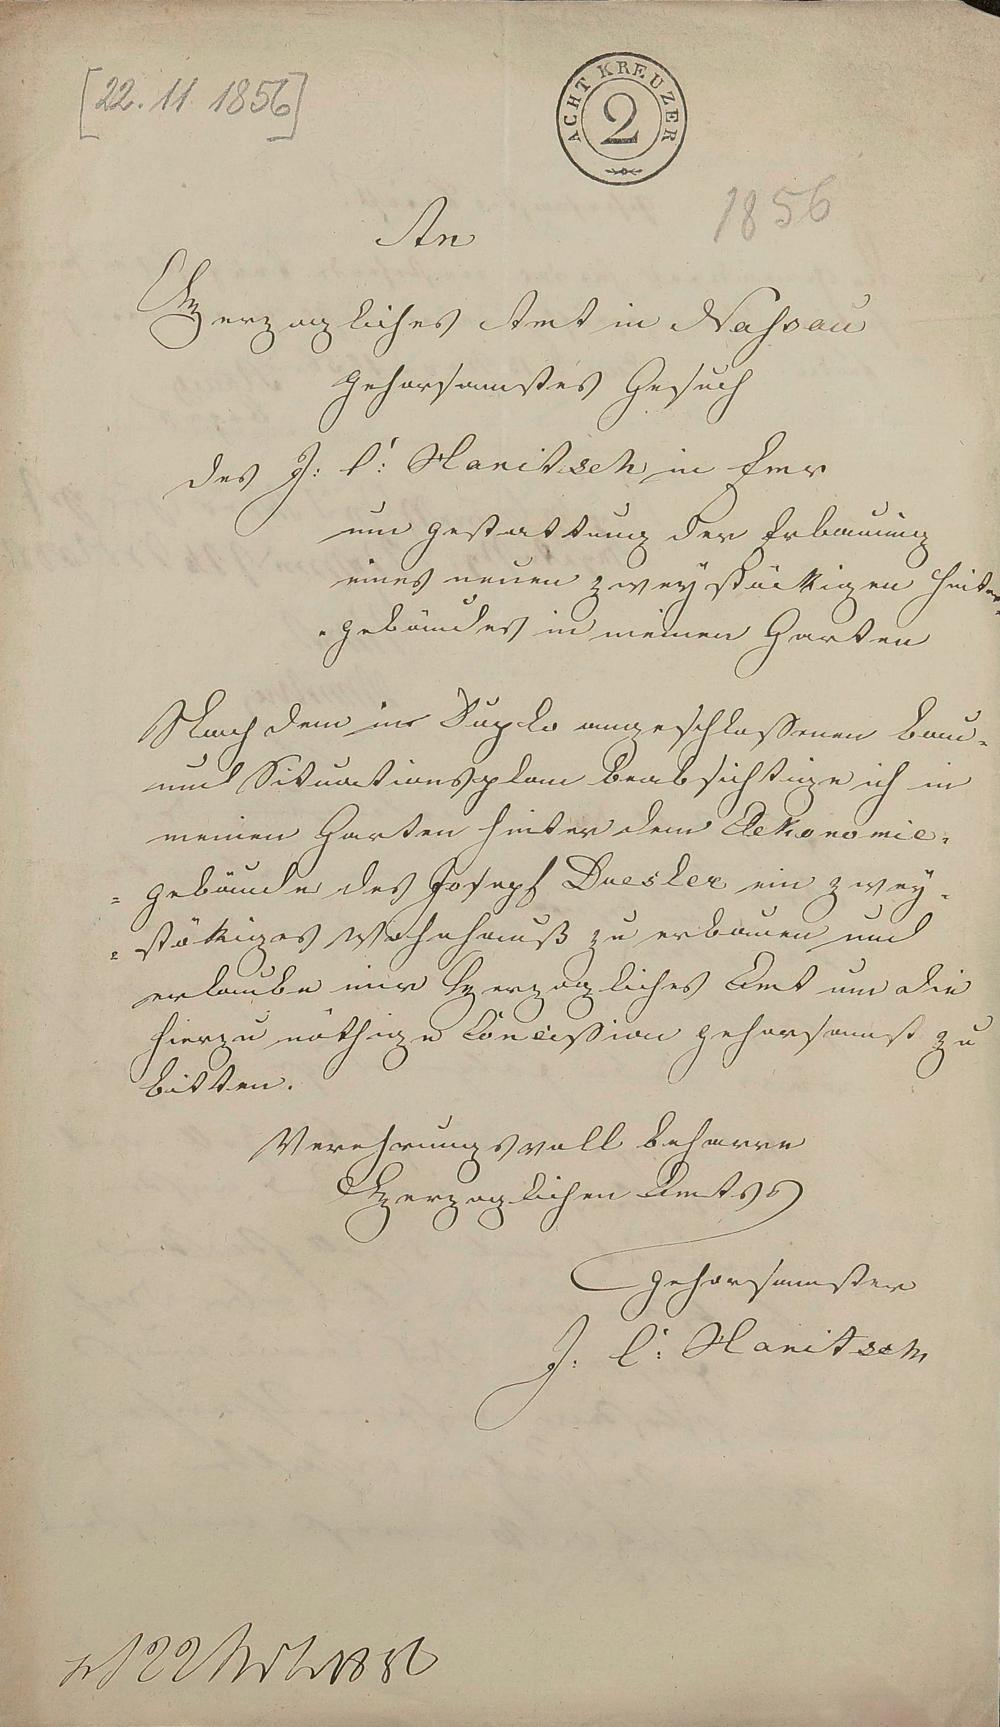 [22. 11. 1856]
ACHT KREUZER
2
1856
An
Herzogliches Amt in Nassau
gehorsamstes Gesuch
des J: C: Hanitsch in Ems
um gestattung der Erbauung
eines neuen zweystöckigen Hinter=
=gebäudes in meinen Garten
Nach dem in Duplo angeschlossenen Bau=
und Situationsplan beabsichtige ich in
meinen Garten hinter dem Oekonomie=
=gebäude des Joseph Duesler ein zwey=
=stökiges Wohnhauß zu erbauen und
erlaube mir Herzogliches Amt um die
hierzu nöthige Concission gehorsamst zu
bitten.
Verehrungsvoll beharre
Herzoglichen Amts
gehorsamster
J: C: Hanitsch
22 1856